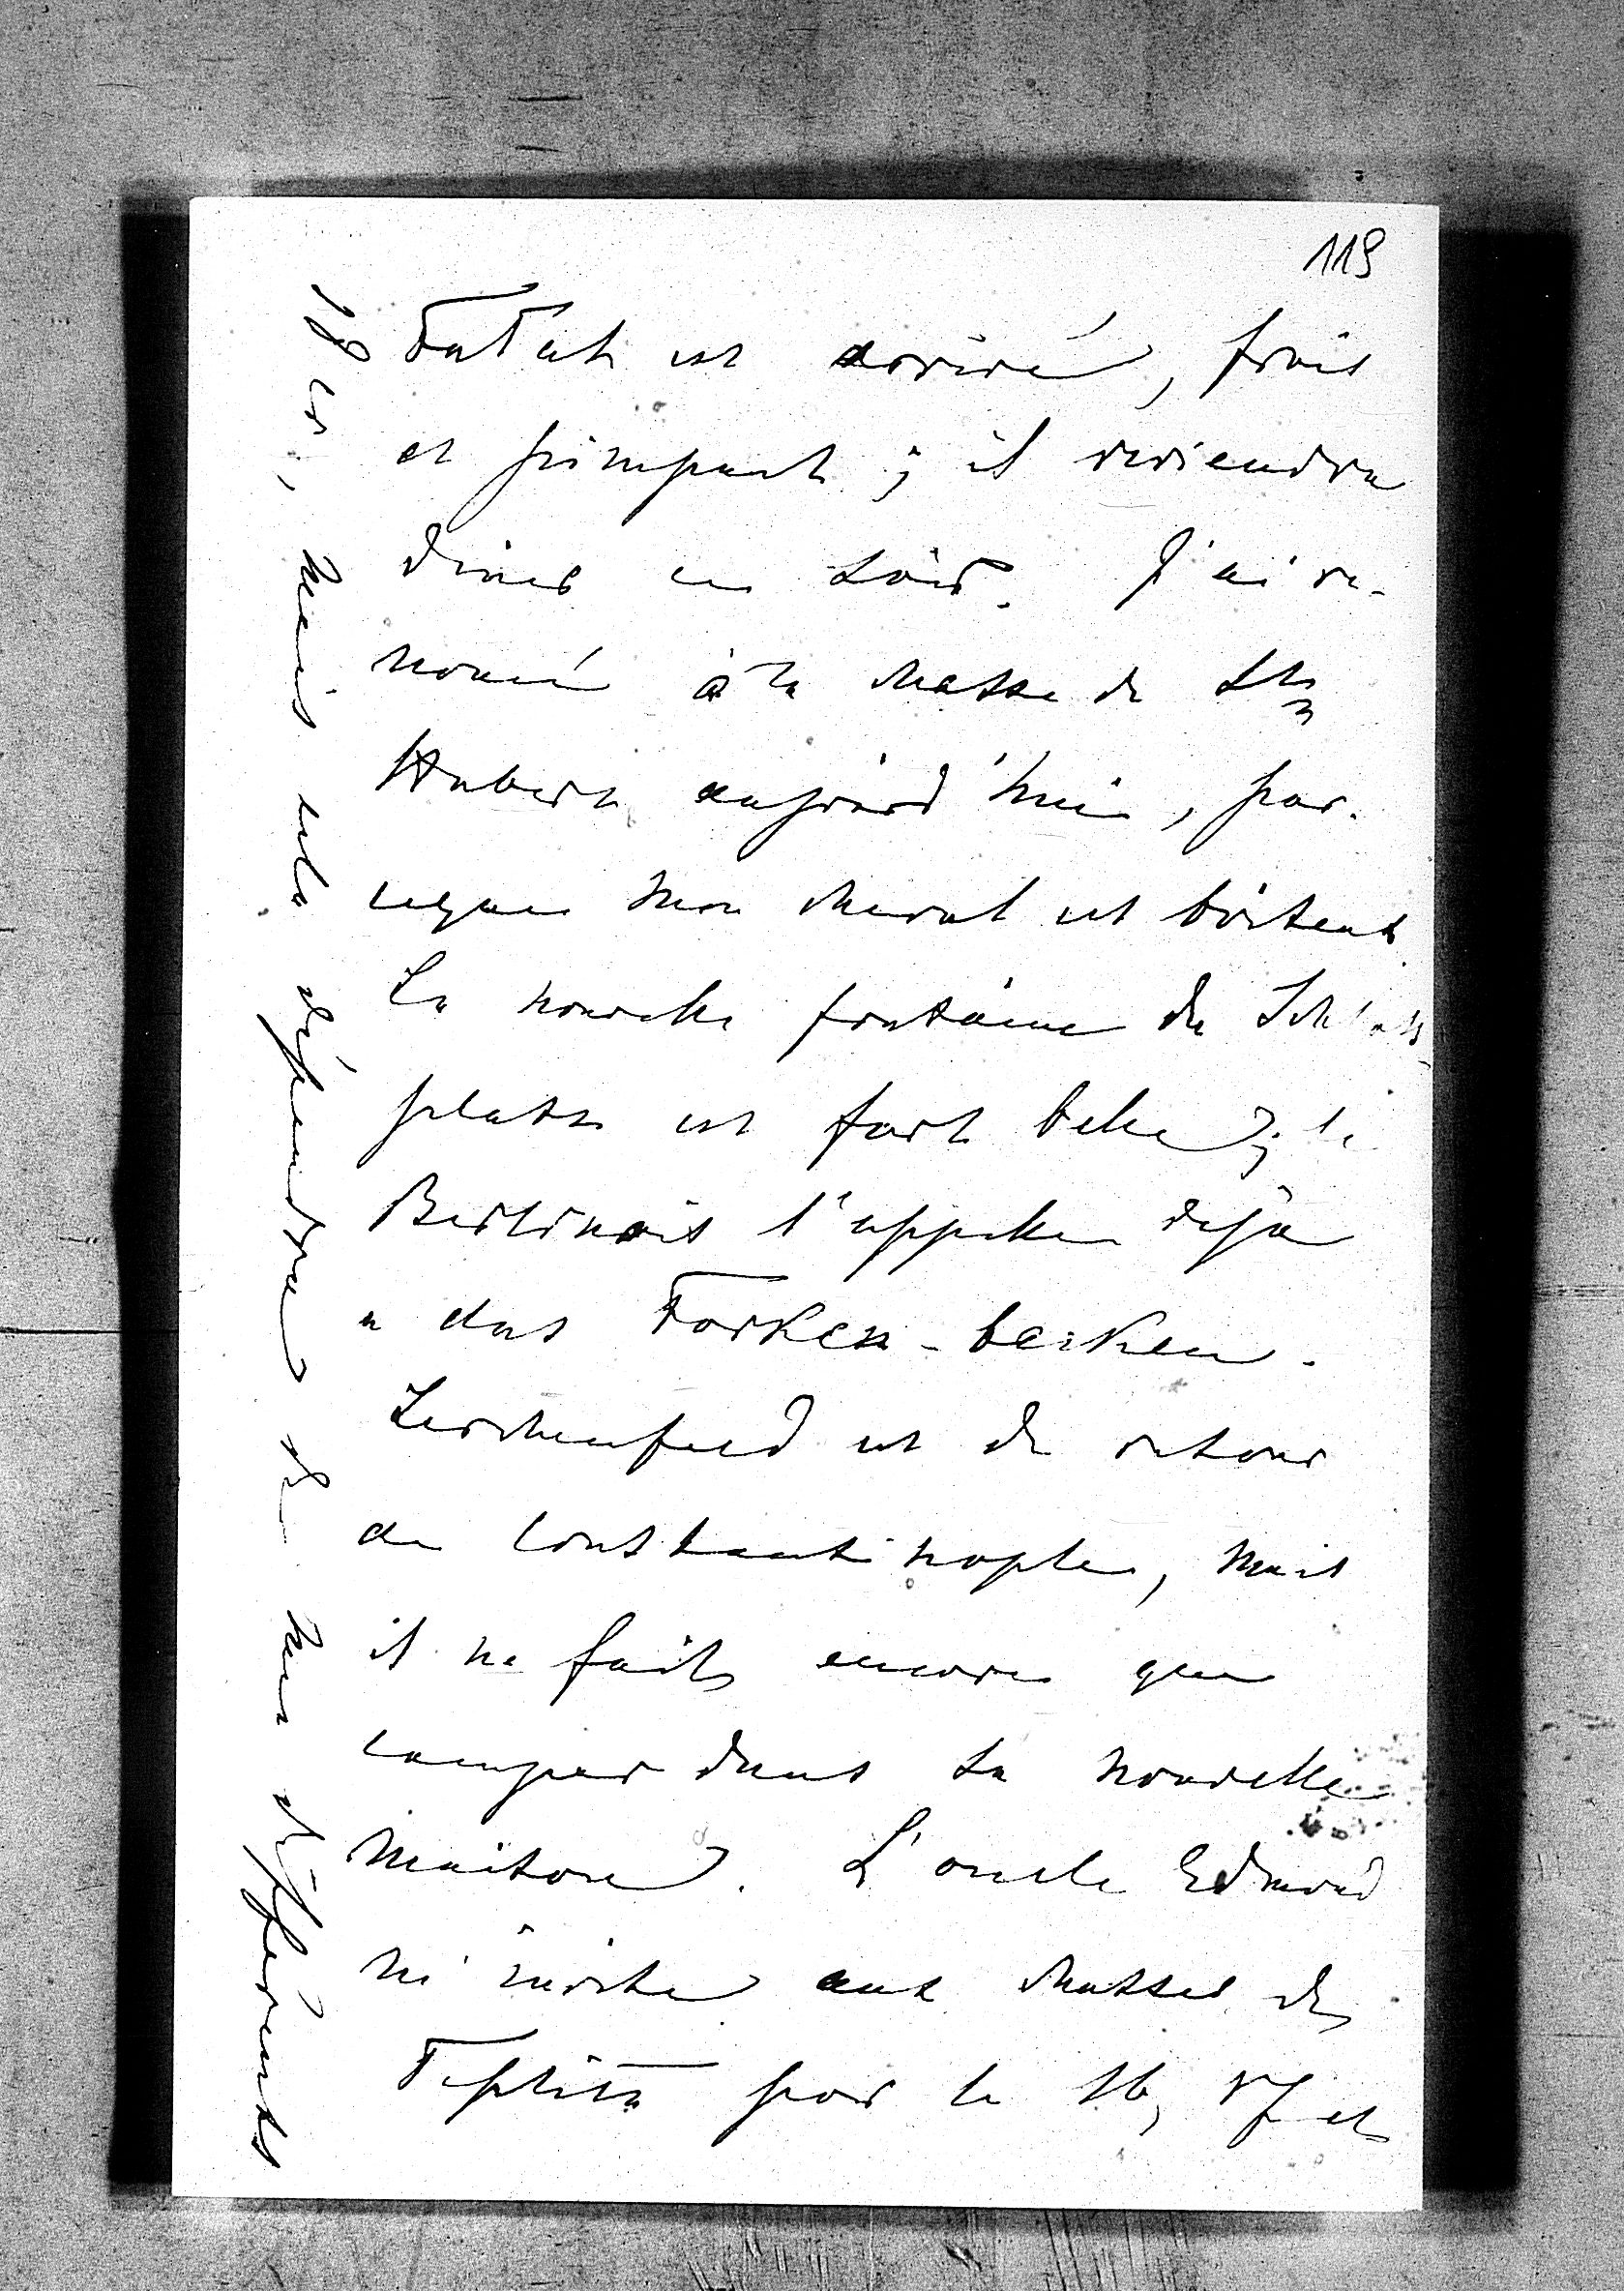 119
est arrivé, frais
et pimpant ; il reviendra
dîner ce soir. J'ai re-
noncé à la chasse de St
Hubert aujourd'hui, par-
ceque mon cheval est boiteux.
La nouvelle fontaine du Schloss
platz est fort belle ; les
Berlinois l'appellent déjà
« das Forken-becken.
Lerchenfeld est de retour
de Constantinople, mais
il ne fait encore que
camper dans sa nouvelle
maison. L'oncle Edmond
m'invite aux chasses de
Teplitz pour le 16, 17 et
18 cr, mais cela dépendra de mes différents